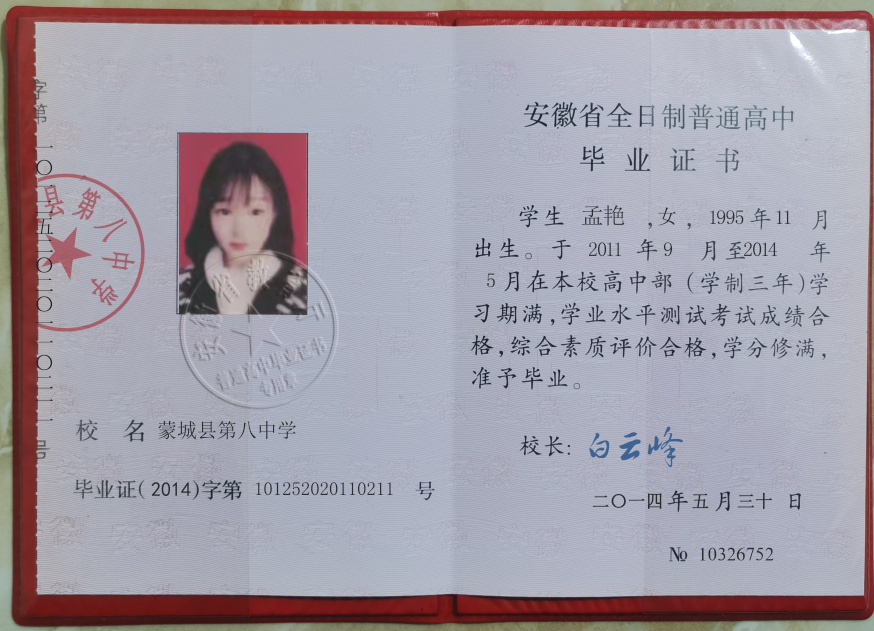 字第一〇一二五二〇二〇一一〇二一一号
县第八中学
校 名 蒙城县第八中学
毕业证(2014)字第 101252020110211 号
安徽省全日制普通高中
毕业证书
学生 孟艳 ,女, 1995年11 月
出生。于 2011 年9 月至2014 年
5月在本校高中部(学制三年)学
习期满,学业水平测试考试成绩合
格,综合素质评价合格,学分修满,
准予毕业。
校长: 白云峰
二〇一四年五月三十日
№ 10326752